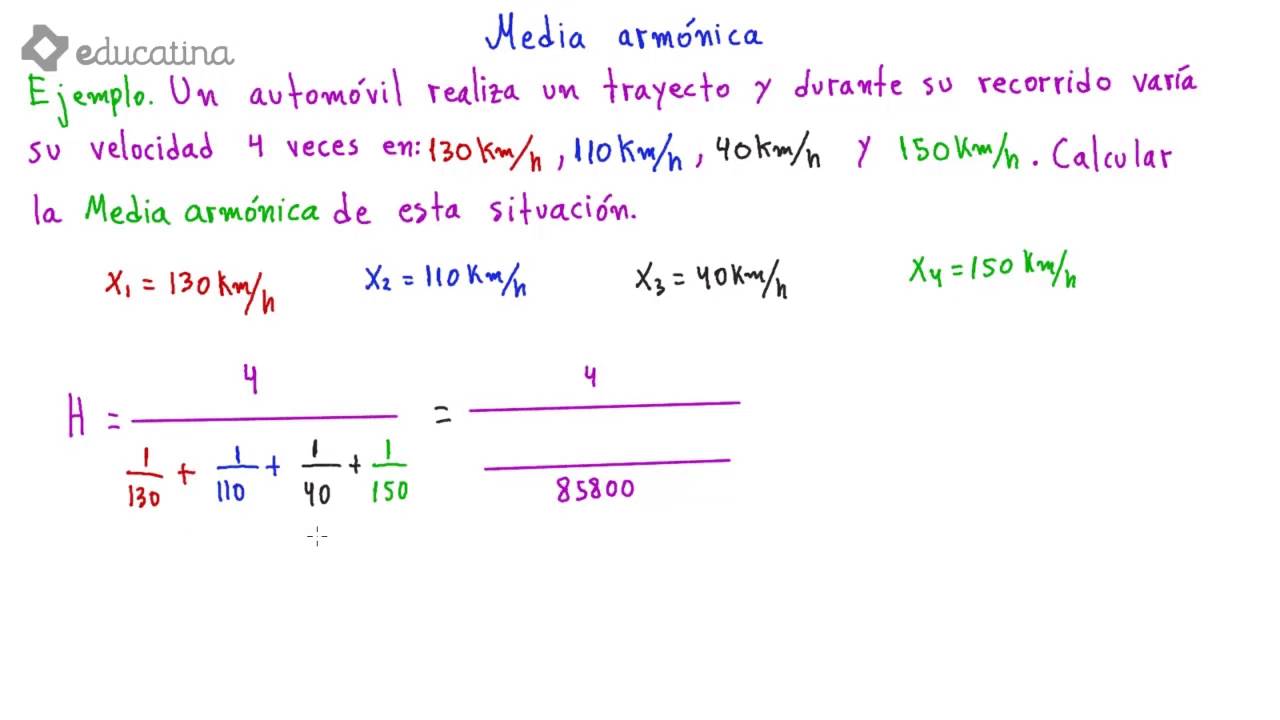 educatina
Media armónica
Ejemplo. Un automóvil realiza un trayecto y durante su recorrido varía
su velocidad 4 veces en: 130 Km/h, 110 Km/h, 40 Km/h y 150 Km/h. Calcular
la Media armónica de esta situación.
X₁ = 130 Km/h X₂ = 110 Km/h X₃ = 40 Km/h X₄ = 150 Km/h
4 4
H = =
1/130 + 1/110 + 1/40 + 1/150
85800